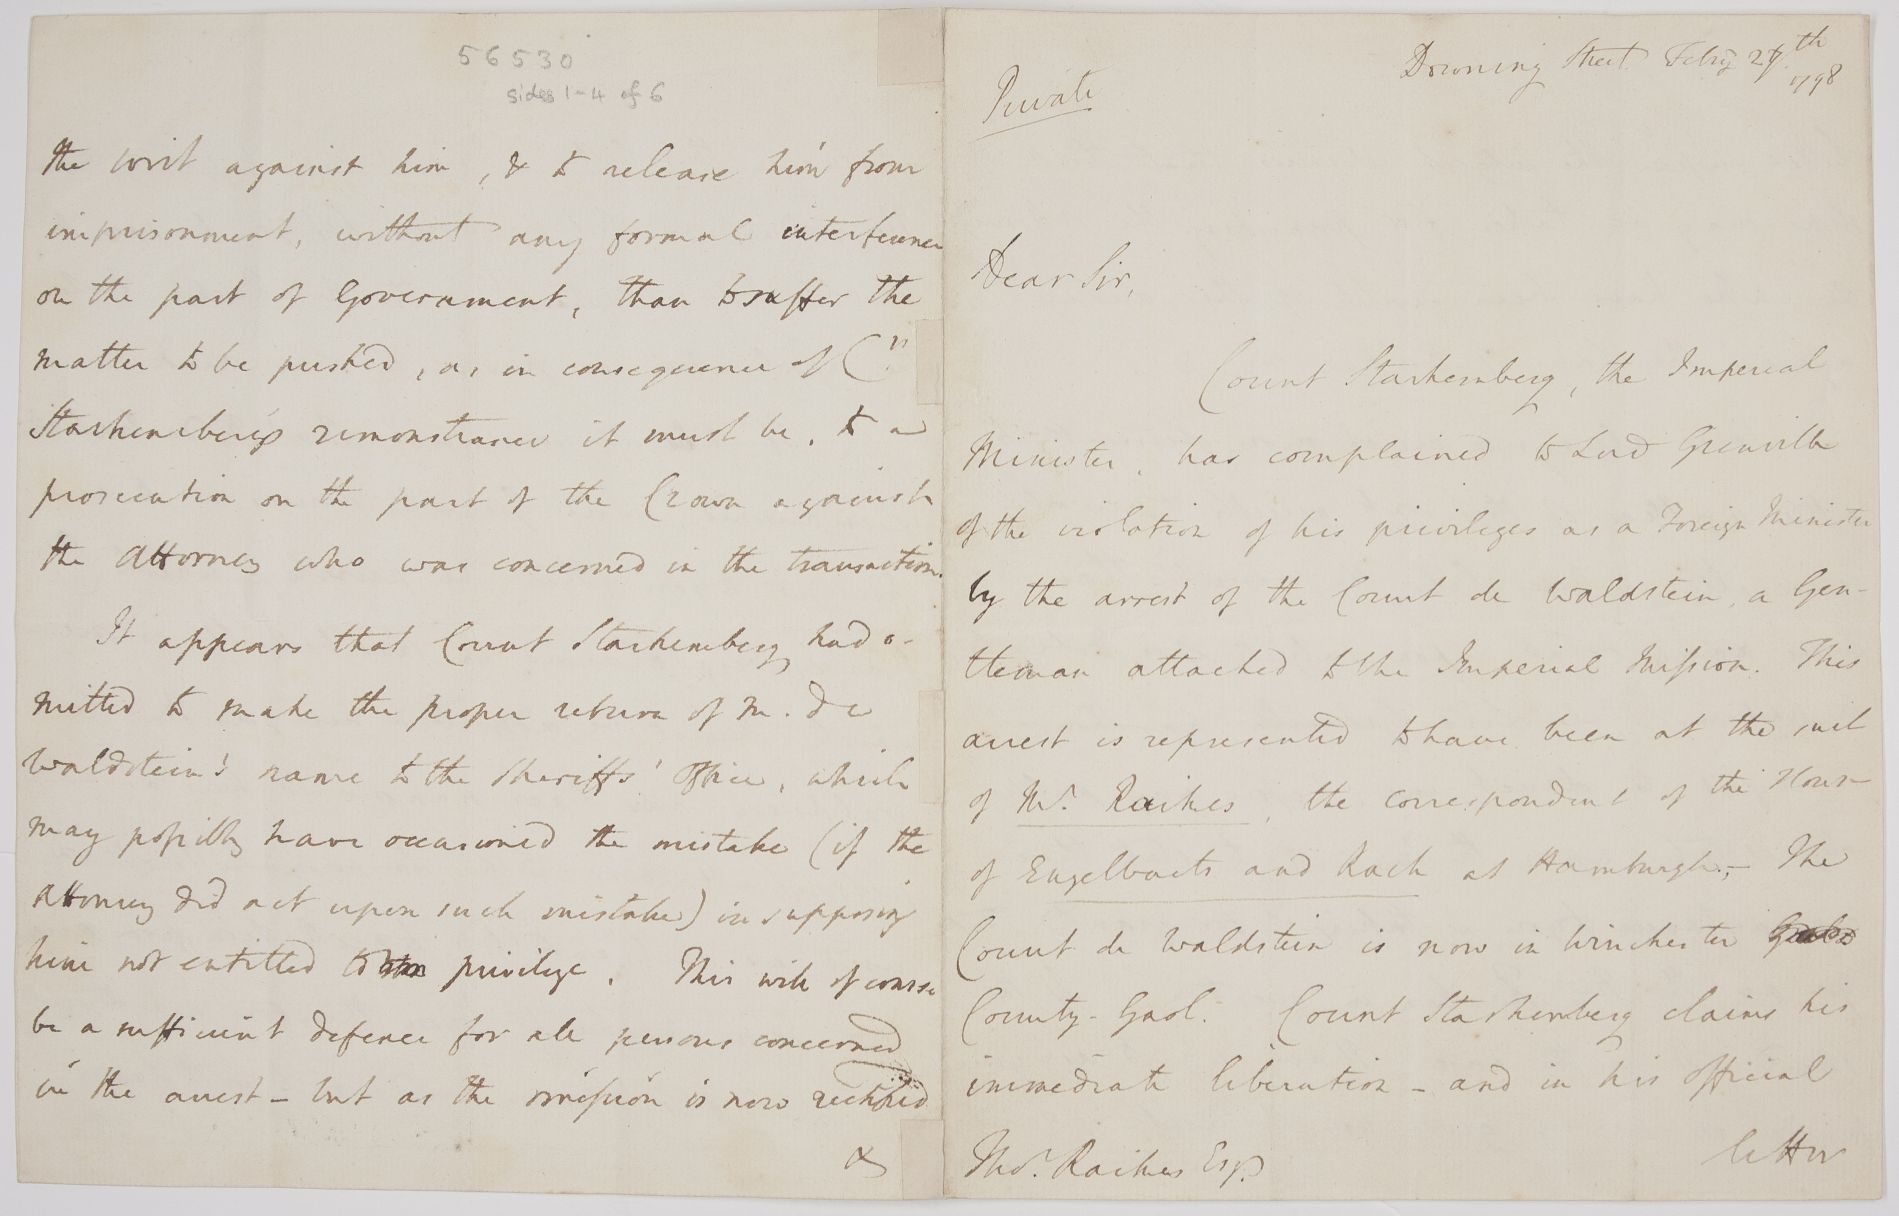 56530
sides 1-4 of 6
the writ against him, & to release him from
imprisonment, without any formal interference
on the part of Government, than to suffer the
matter to be pushed, as in consequence of Ct.
Starhemberg's remonstrance it must be, to a
prosecution on the part of the Crown against
the Attorney who was concerned in the transaction.
It appears that Count Starhemberg had o-
mitted to make the proper return of M. de
Waldstein's name to the Sheriffs' Office, which
may possibly have occasioned the mistake (if the
Attorney did act upon such mistake) in supposing
him not entitled to privilege. This will of course
be a sufficient defence for all persons concerned
in the arrest – but as the omission is now rectified
&
Private
Downing Street Feby 27th
1798
Dear Sir,
Count Starhemberg, the Imperial
Minister, has complained to Lord Grenville
of the violation of his privileges as a Foreign Minister
by the arrest of the Count de Waldstein, a Gen-
tleman attached to the Imperial Mission. This
arrest is represented to have been at the suit
of Mr. Raikes, the correspondent of the House
of Engelbacts and Rack at Hamburgh. – The
Count de Waldstein is now in Winchester
County-Gaol. Count Starhemberg claims his
immediate liberation – and in his official
Thos. Raikes Esqr.
letter